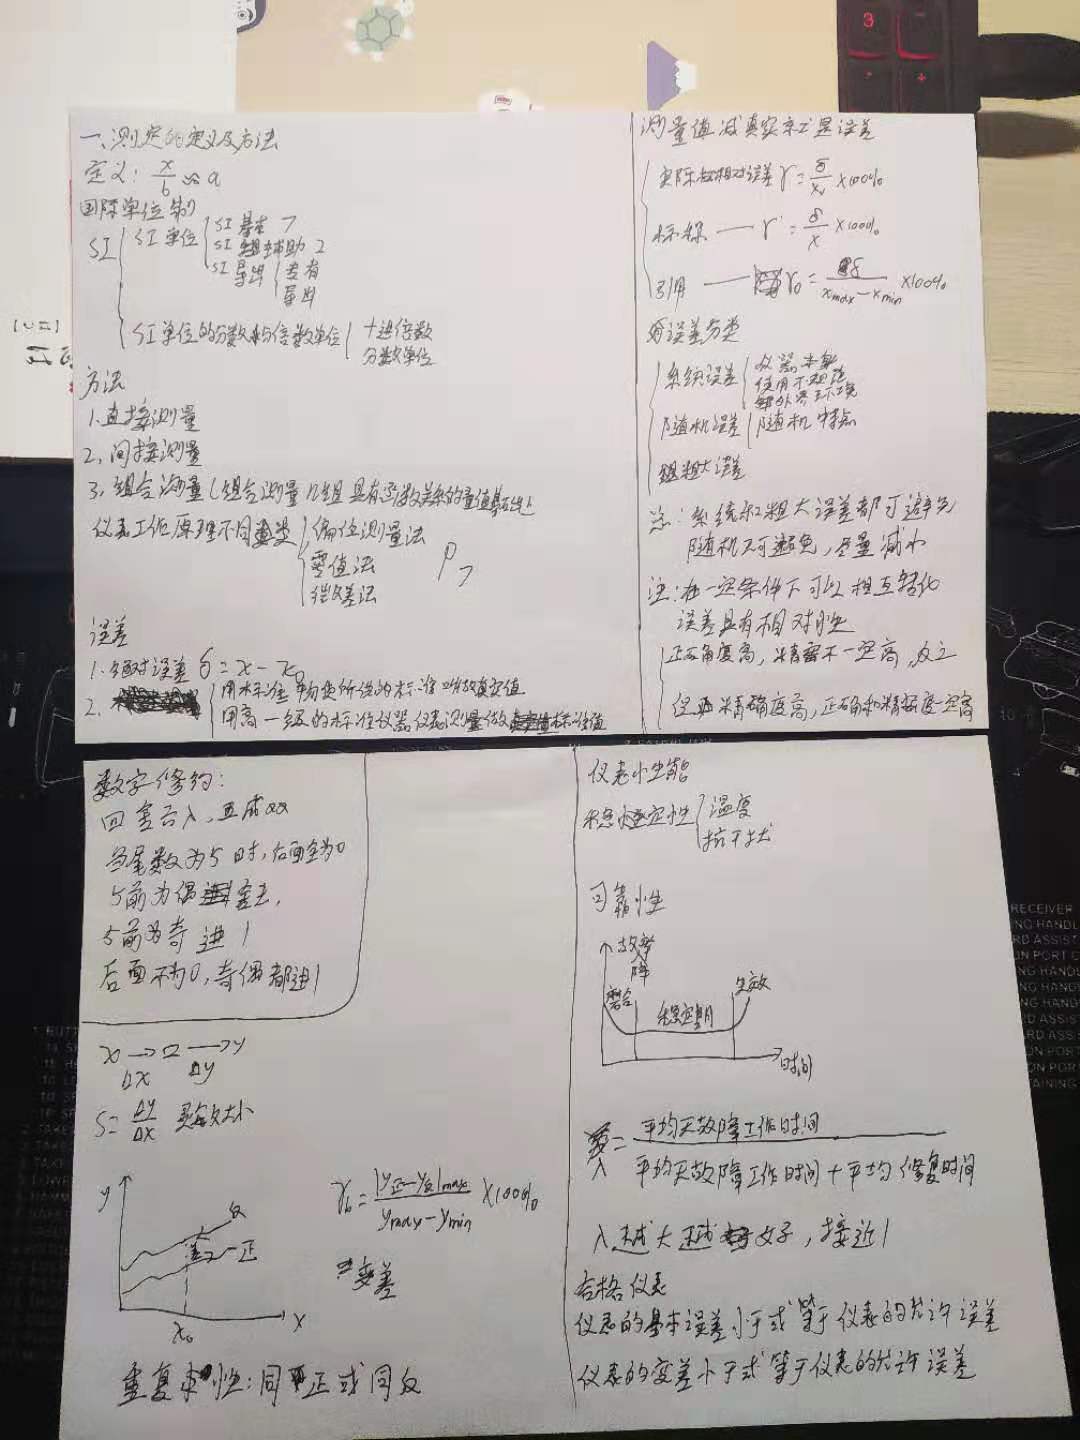 一、测定的定义及方法
定义：x/b ≈ a
国际单位制
SI
SI单位
SI 基本 7
SI 辅助 2
SI 导出
专有
导出
SI单位的分数和倍数单位
十进倍数
分数单位
方法
1.直接测量
2.间接测量
3.组合测量(组合测量n组具有函数关系的量值基础上
仪表工作原理不同
偏位测量法
零值法
微差法
P7
误差
1.绝对误差 δ=x-x0
用标准物质所供的标准当做真实值
2.
用高一级的标准仪器仪表测量做标准值
测量值减真实求是误差
实际相对误差γ=δ/x0 ×100%
标称 —— γ=δ/x ×100%
引用 —— γ0=δ/(xmax-xmin) ×100%
误差分类
系统误差
仪器本身
使用不规范
外界环境
随机误差
随机 特点
粗大误差
总：系统和粗大误差都可避免
随机不可避免，尽量减小
注：在一定条件下可以相互转化
误差具有相对性
正确度高，精密不一定高，反之
但 精确度高，正确和精密度一定高
数字修约：
四舍六入，五成双
当尾数为5时，后面全为0
5前为偶舍去，
5前为奇进1
后面不为0，奇偶都进1
x → □ → y
Δx Δy
S=Δy/Δx 灵敏大小
y
反
正
x0
x
γb=|y正-y反|max/(ymax-ymin) ×100%
变差
重复性：同正或同反
仪表性能
稳定性
温度
抗干扰
可靠性
故障
磨合
稳定期
失效
时间
λ=平均无故障工作时间/(平均无故障工作时间+平均修复时间)
λ越大越好，接近1
合格仪表
仪表的基本误差小于或等于仪表的允许误差
仪表的变差小于或等于仪表的允许误差
3
RECEIVER